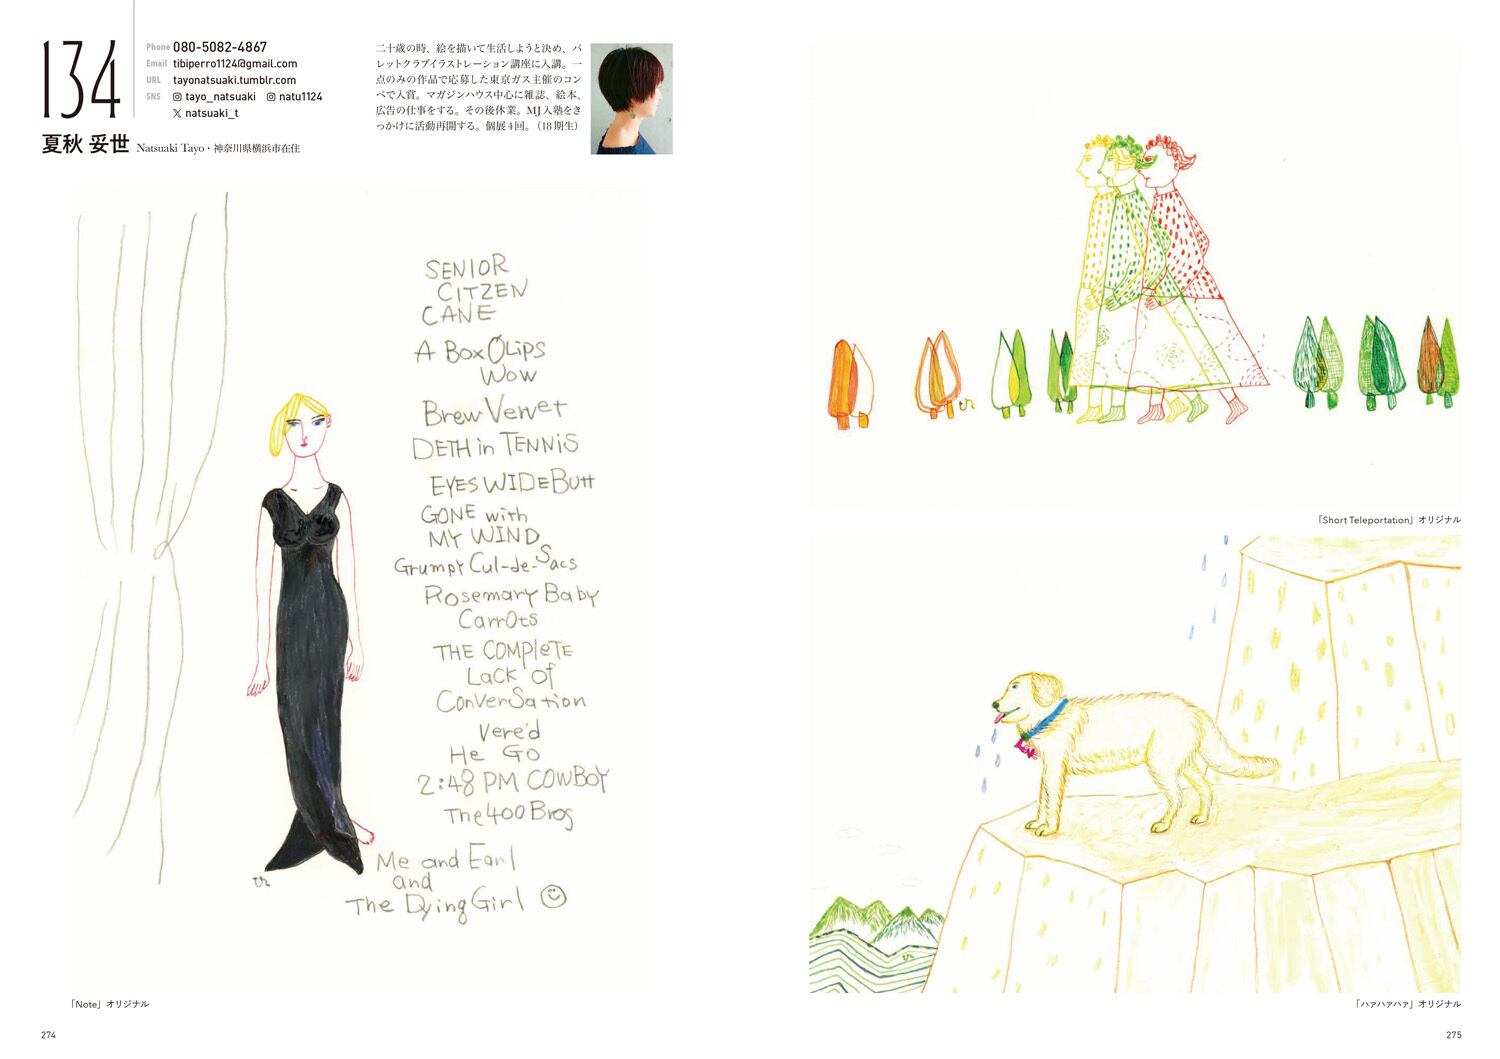 134
Phone 080-5082-4867
Email tibiperro1124@gmail.com
URL tayonatsuaki.tumblr.com
SNS tayo_natsuaki natu1124
natsuaki_t
夏秋 妥世 Natsuaki Tayo・神奈川県横浜市在住
二十歳の時、絵を描いて生活しようと決め、パ
レットクラブイラストレーション講座に入講。一
点のみの作品で応募した東京ガス主催のコン
ペで入賞。マガジンハウス中心に雑誌、絵本、
広告の仕事をする。その後休業。MJ入塾をき
っかけに活動再開する。個展4回。（18期生）
SENIOR
CITZEN
CANE
A Box O Lips
Wow
Brew Vervet
DETH in TENNiS
EYES WIDE Butt
GONE with
MY WIND
Grumpy Cul-de-Sacs
Rosemary Baby
CarrOts
THE COMPleTE
Lack Of
ConverSation
Vere'd
He Go
2:48 PM COWBOY
The 400 Bros
Me and Earl
and
The Dying Girl
「Note」オリジナル
274
「Short Teleportation」オリジナル
「ハァハァハァ」オリジナル
275